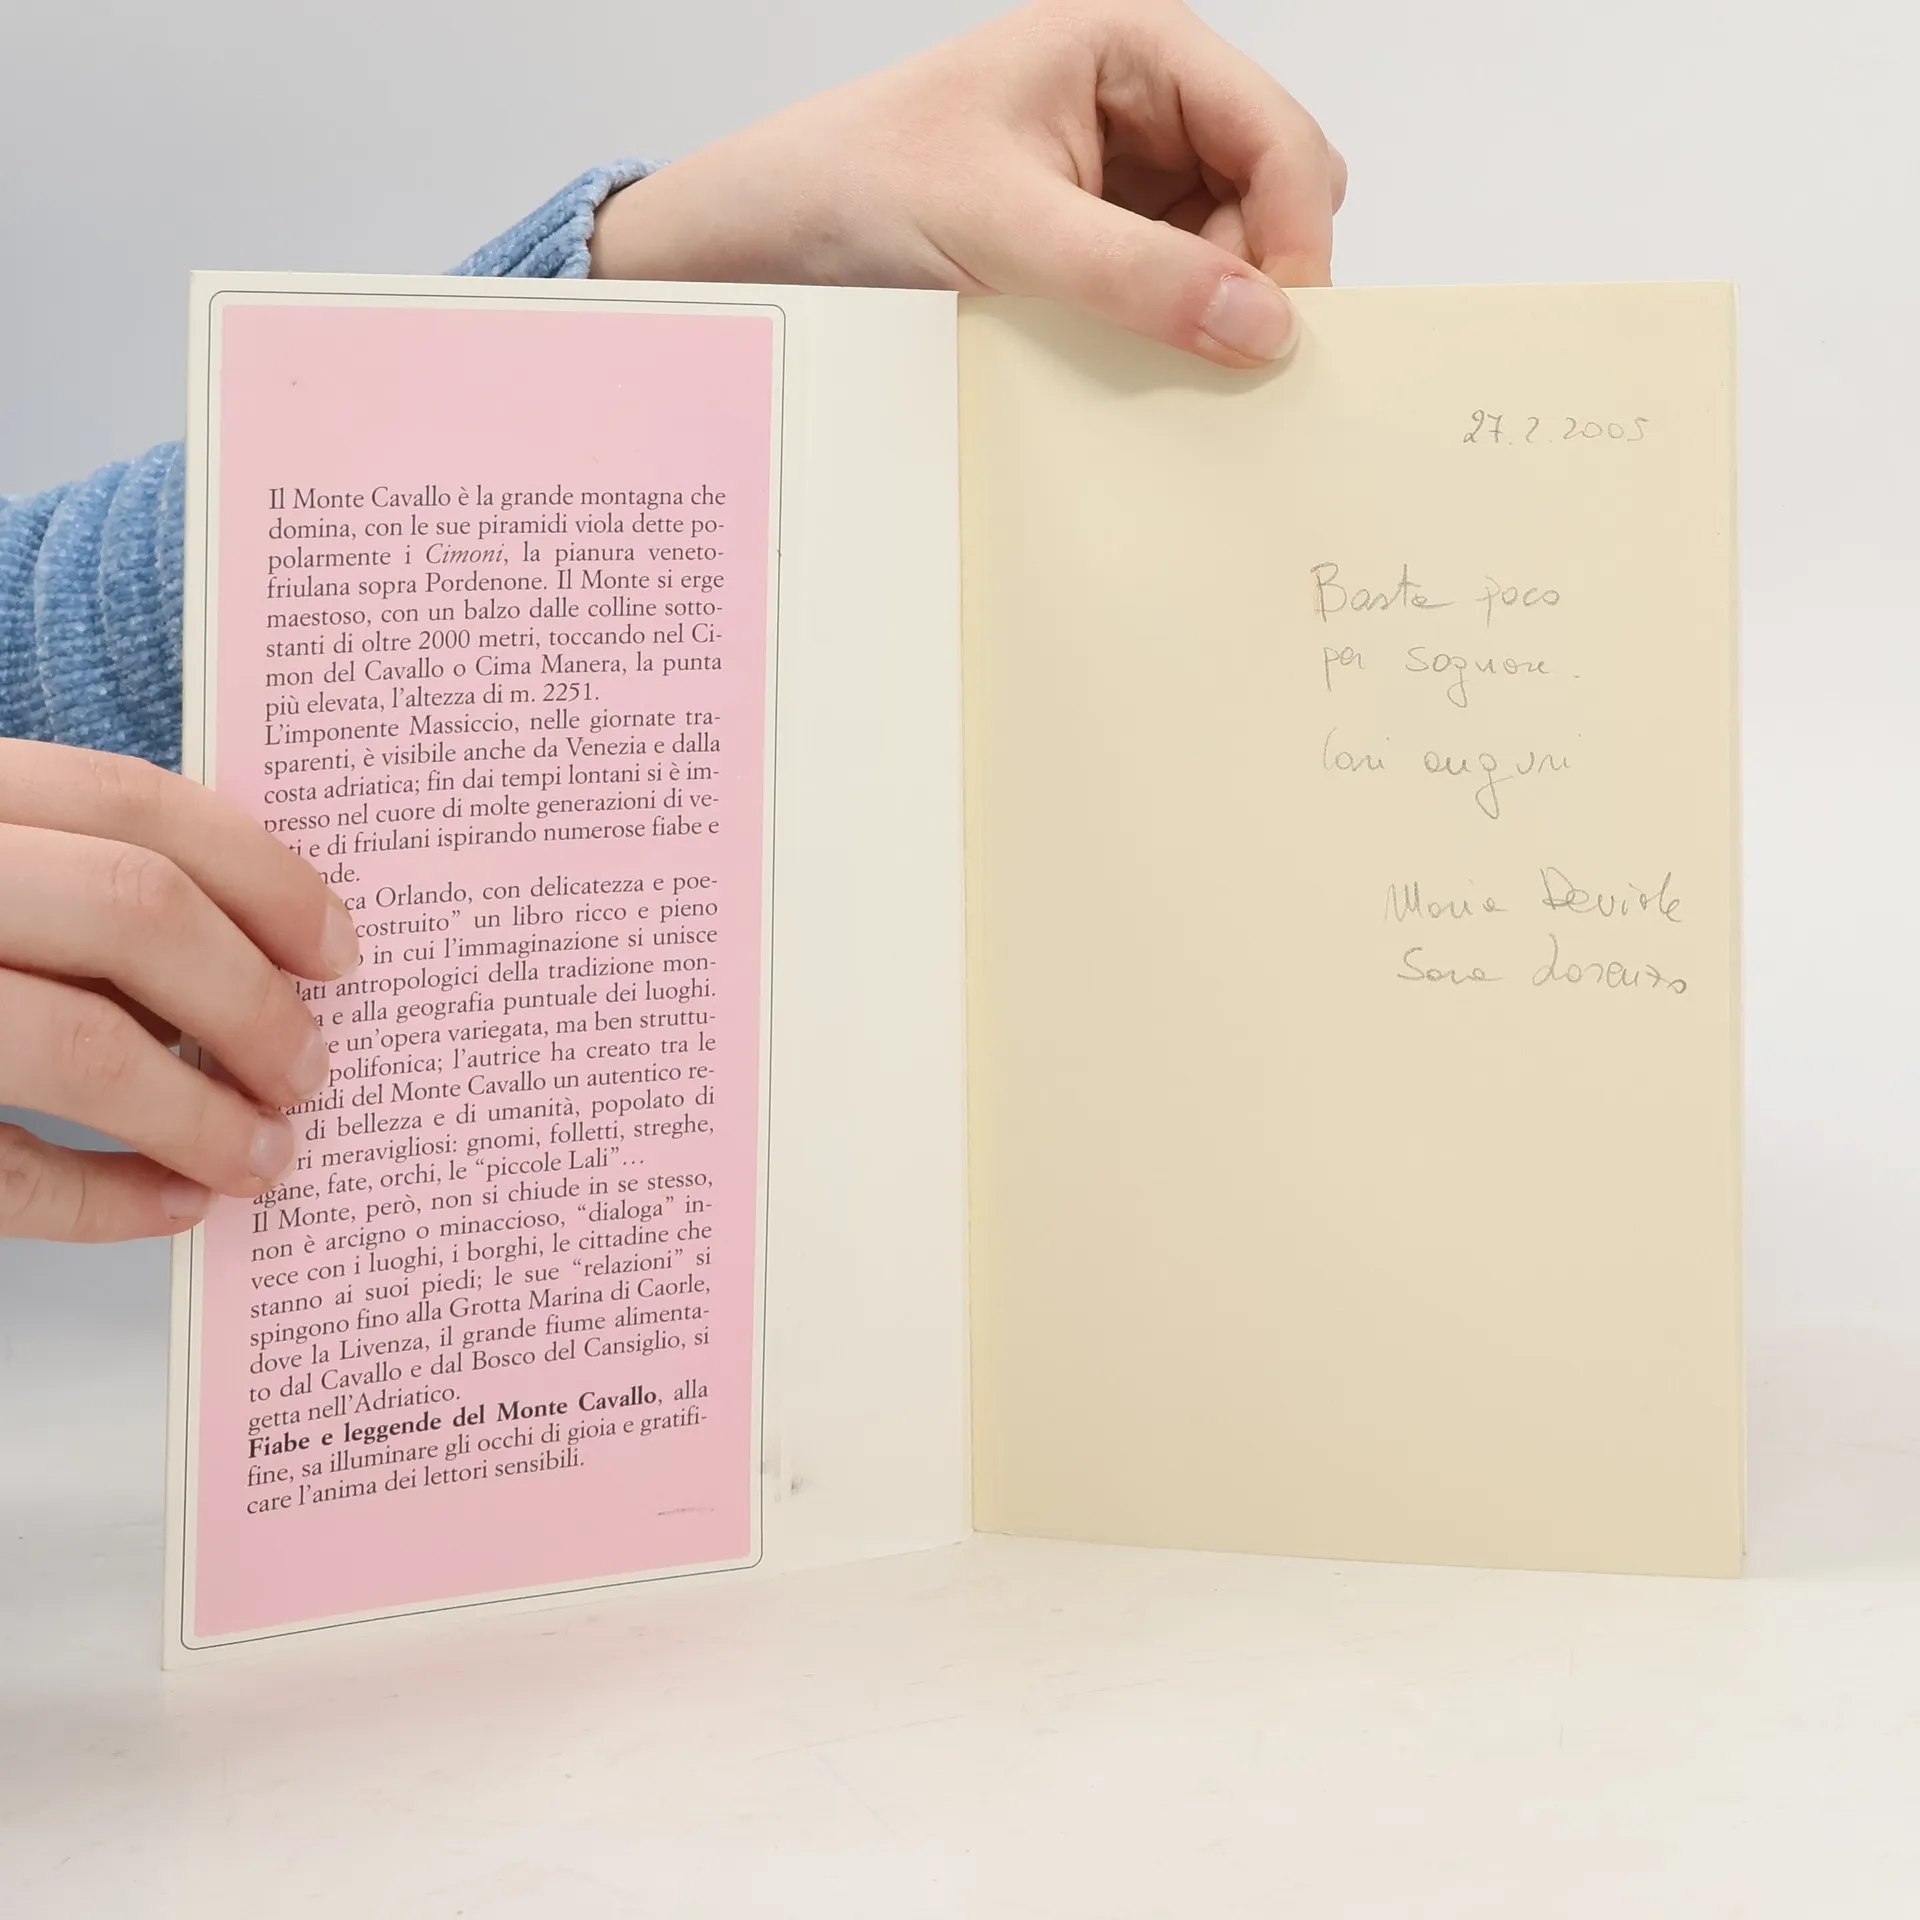 Il Monte Cavallo è la grande montagna che
domina, con le sue piramidi viola dette po-
polarmente i Cimoni, la pianura veneto-
friulana sopra Pordenone. Il Monte si erge
maestoso, con un balzo dalle colline sotto-
stanti di oltre 2000 metri, toccando nel Ci-
mon del Cavallo o Cima Manera, la punta
più elevata, l'altezza di m. 2251.
L'imponente Massiccio, nelle giornate tra-
sparenti, è visibile anche da Venezia e dalla
costa adriatica; fin dai tempi lontani si è im-
presso nel cuore di molte generazioni di ve-
ti e di friulani ispirando numerose fiabe e
nde.
ca Orlando, con delicatezza e poe-
costruito” un libro ricco e pieno
in cui l'immaginazione si unisce
dati antropologici della tradizione mon-
a e alla geografia puntuale dei luoghi.
e un'opera variegata, ma ben struttu-
polifonica; l'autrice ha creato tra le
amidi del Monte Cavallo un autentico re-
di bellezza e di umanità, popolato di
ri meravigliosi: gnomi, folletti, streghe,
agàne, fate, orchi, le “piccole Lali”...
Il Monte, però, non si chiude in se stesso,
non è arcigno o minaccioso, “dialoga” in-
vece con i luoghi, i borghi, le cittadine che
stanno ai suoi piedi; le sue “relazioni” si
spingono fino alla Grotta Marina di Caorle,
dove la Livenza, il grande fiume alimenta-
to dal Cavallo e dal Bosco del Cansiglio, si
getta nell'Adriatico.
Fiabe e leggende del Monte Cavallo, alla
fine, sa illuminare gli occhi di gioia e gratifi-
care l'anima dei lettori sensibili.
27.2.2005
Basta poco
per sognare.
Cari auguri
Maria Davide
Sara Lorenzo